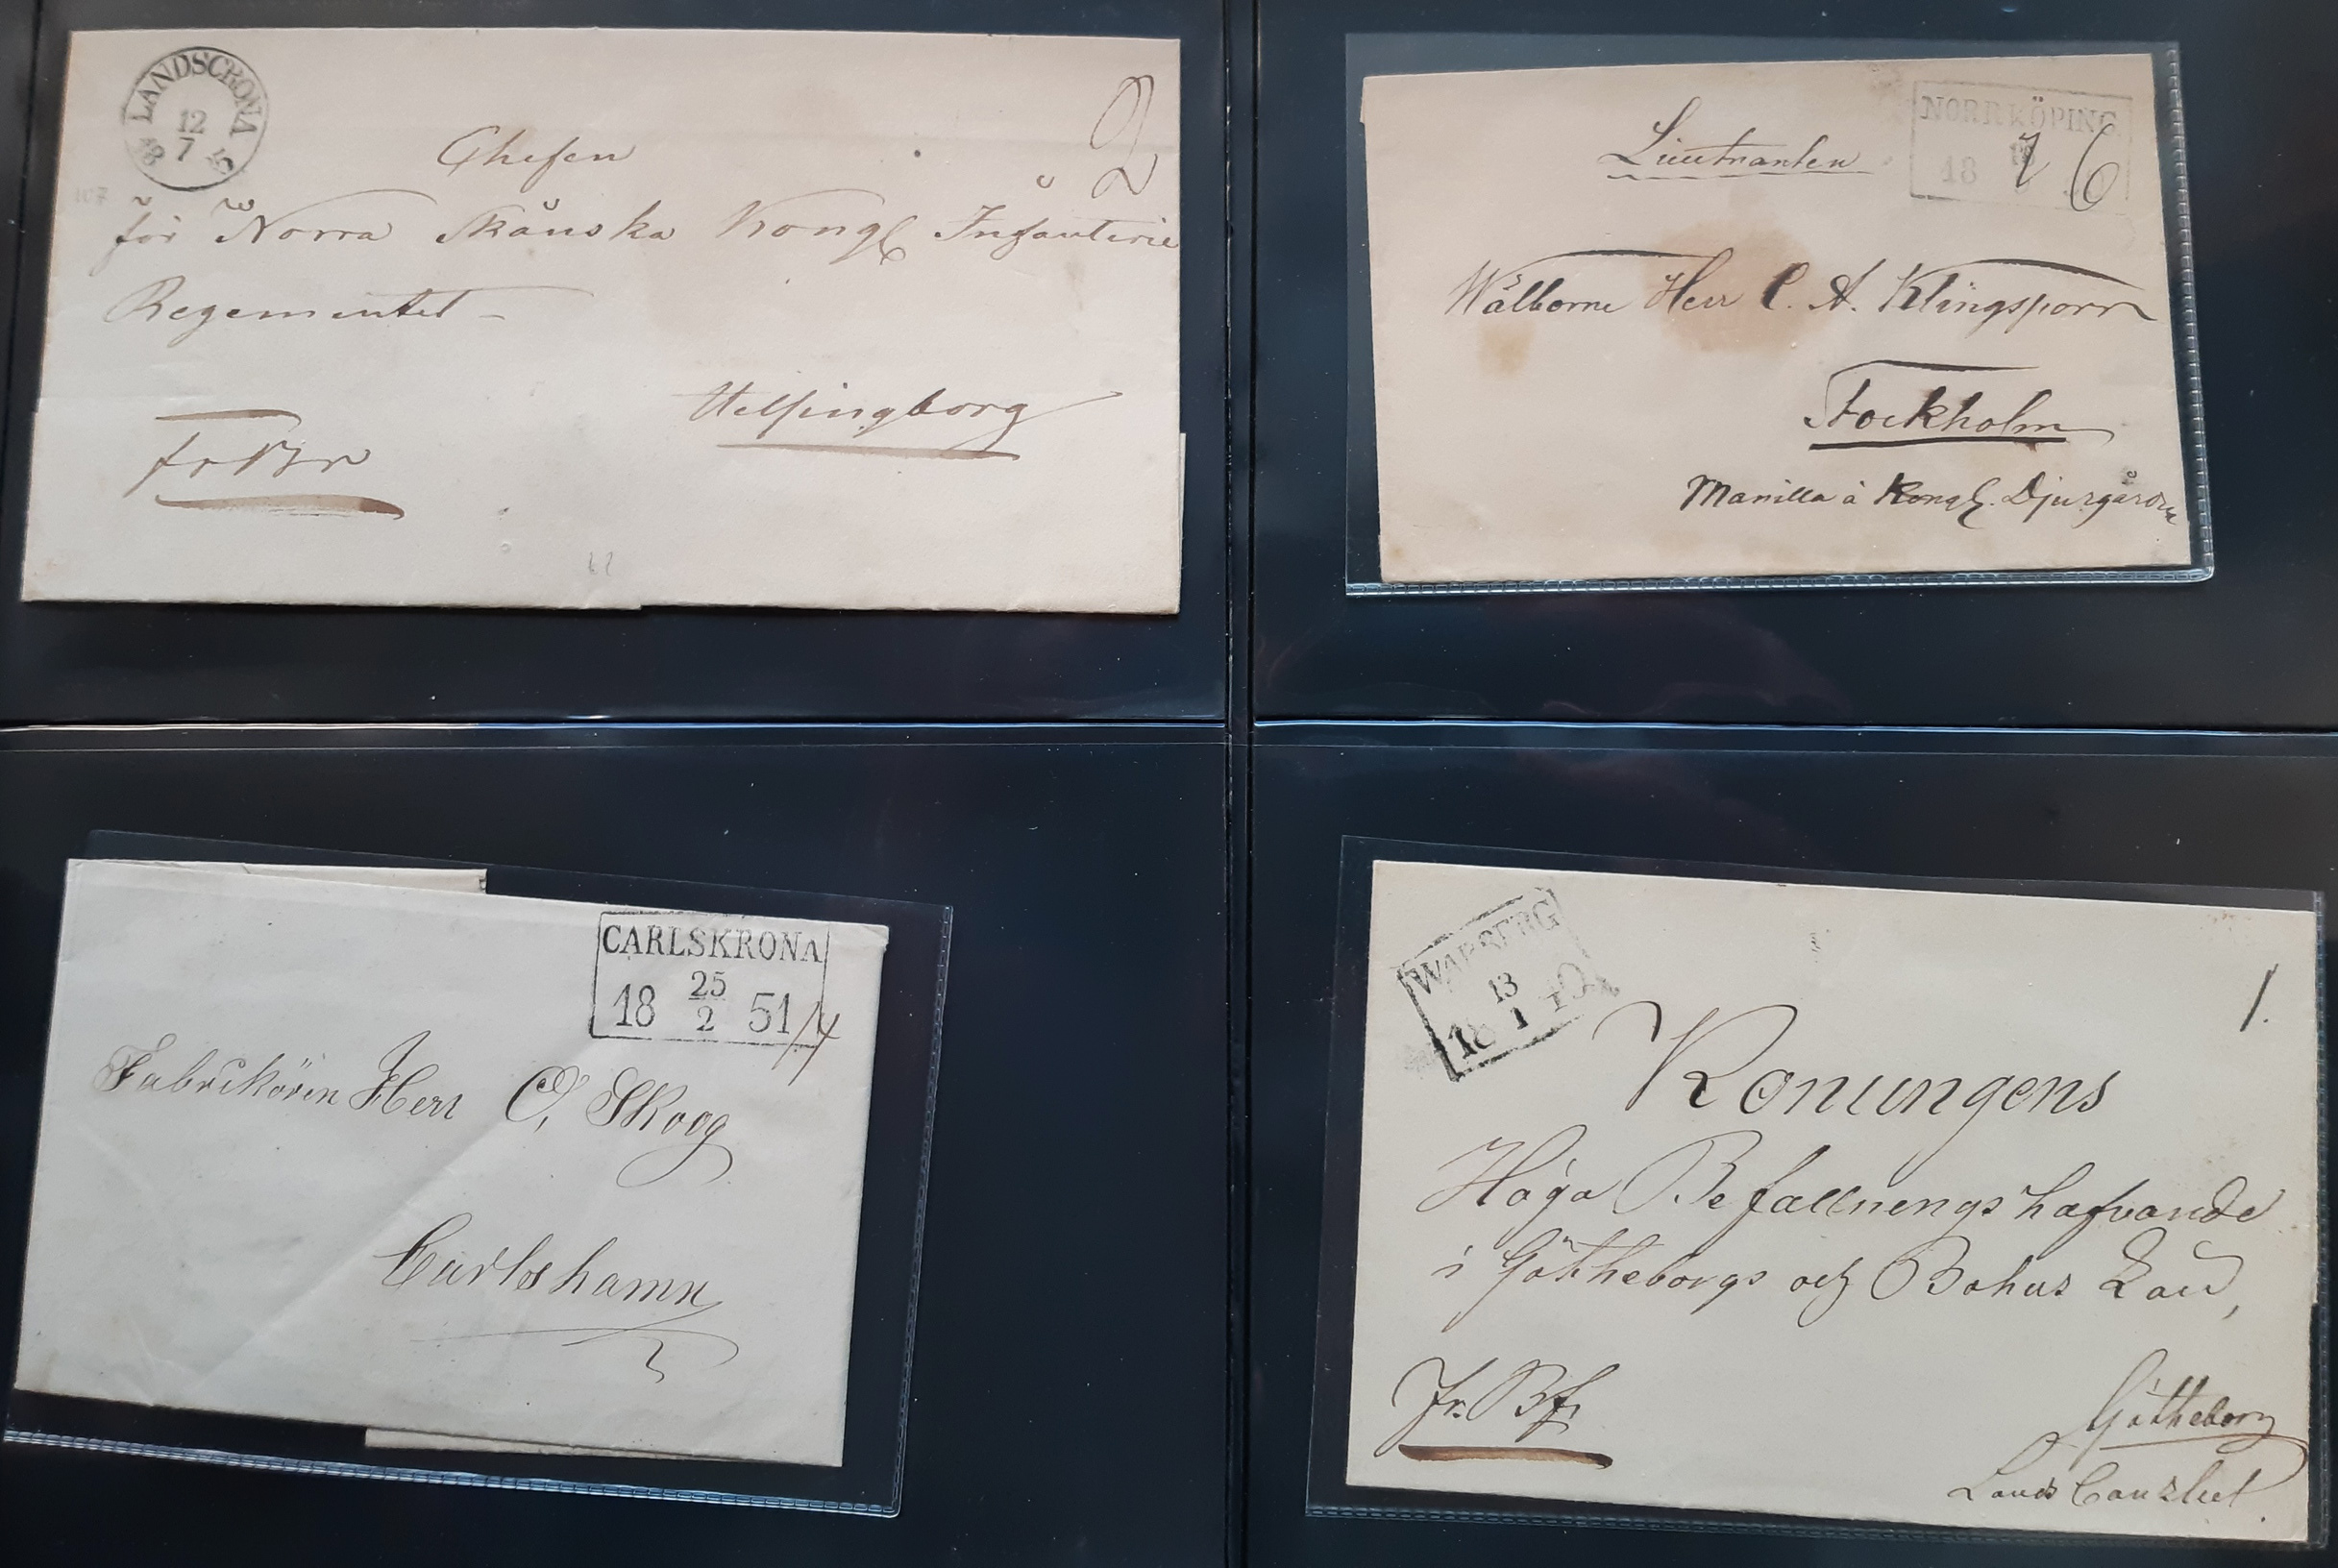 LANDSCRONA
12
7
2
Chefen
för Norra Skånska Kongl Infanterie
Regementet
Helsingborg
NORRKÖPING
18
6
Lieutnanten
Wälborne Herr C. A. Klingsporr
Stockholm
Manilla å Kongl. Djurgården
CARLSKRONA
25
18 2 51
Fabrikören Herr O, Skoog
Carlshamn
WARBERG
13
18 1
1.
Konungens
Höga Befallningshafvande
i Götheborgs och Bohus Län,
Fr. Bf,
Götheborg
Lands Canzliet